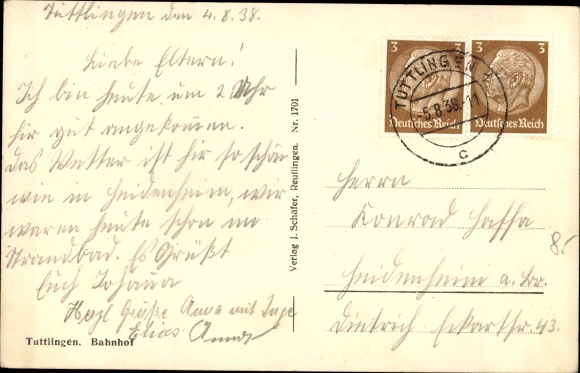 Tuttlingen den 4.8.38.
Liebe Eltern!
Ich bin heute um 2 Uhr
hir gut angekommen.
Das Wetter ist hir so schön
wie in Heidenheim, wir
waren heute schon im
Strandbad. Es Grüßt
Euch Johanna
Herzl Grüße Anna mit Inge
Elias
Tuttlingen. Bahnhof
Verlag J. Schäfer, Reutlingen. Nr. 1701
3 3
Deutsches Reich
3 3
Deutsches Reich
TUTTLINGEN
-5.8.38.-11
c
Herrn
Konrad Haffa
Heidenheim a. Br.
Dietrich Eckartstr. 43.